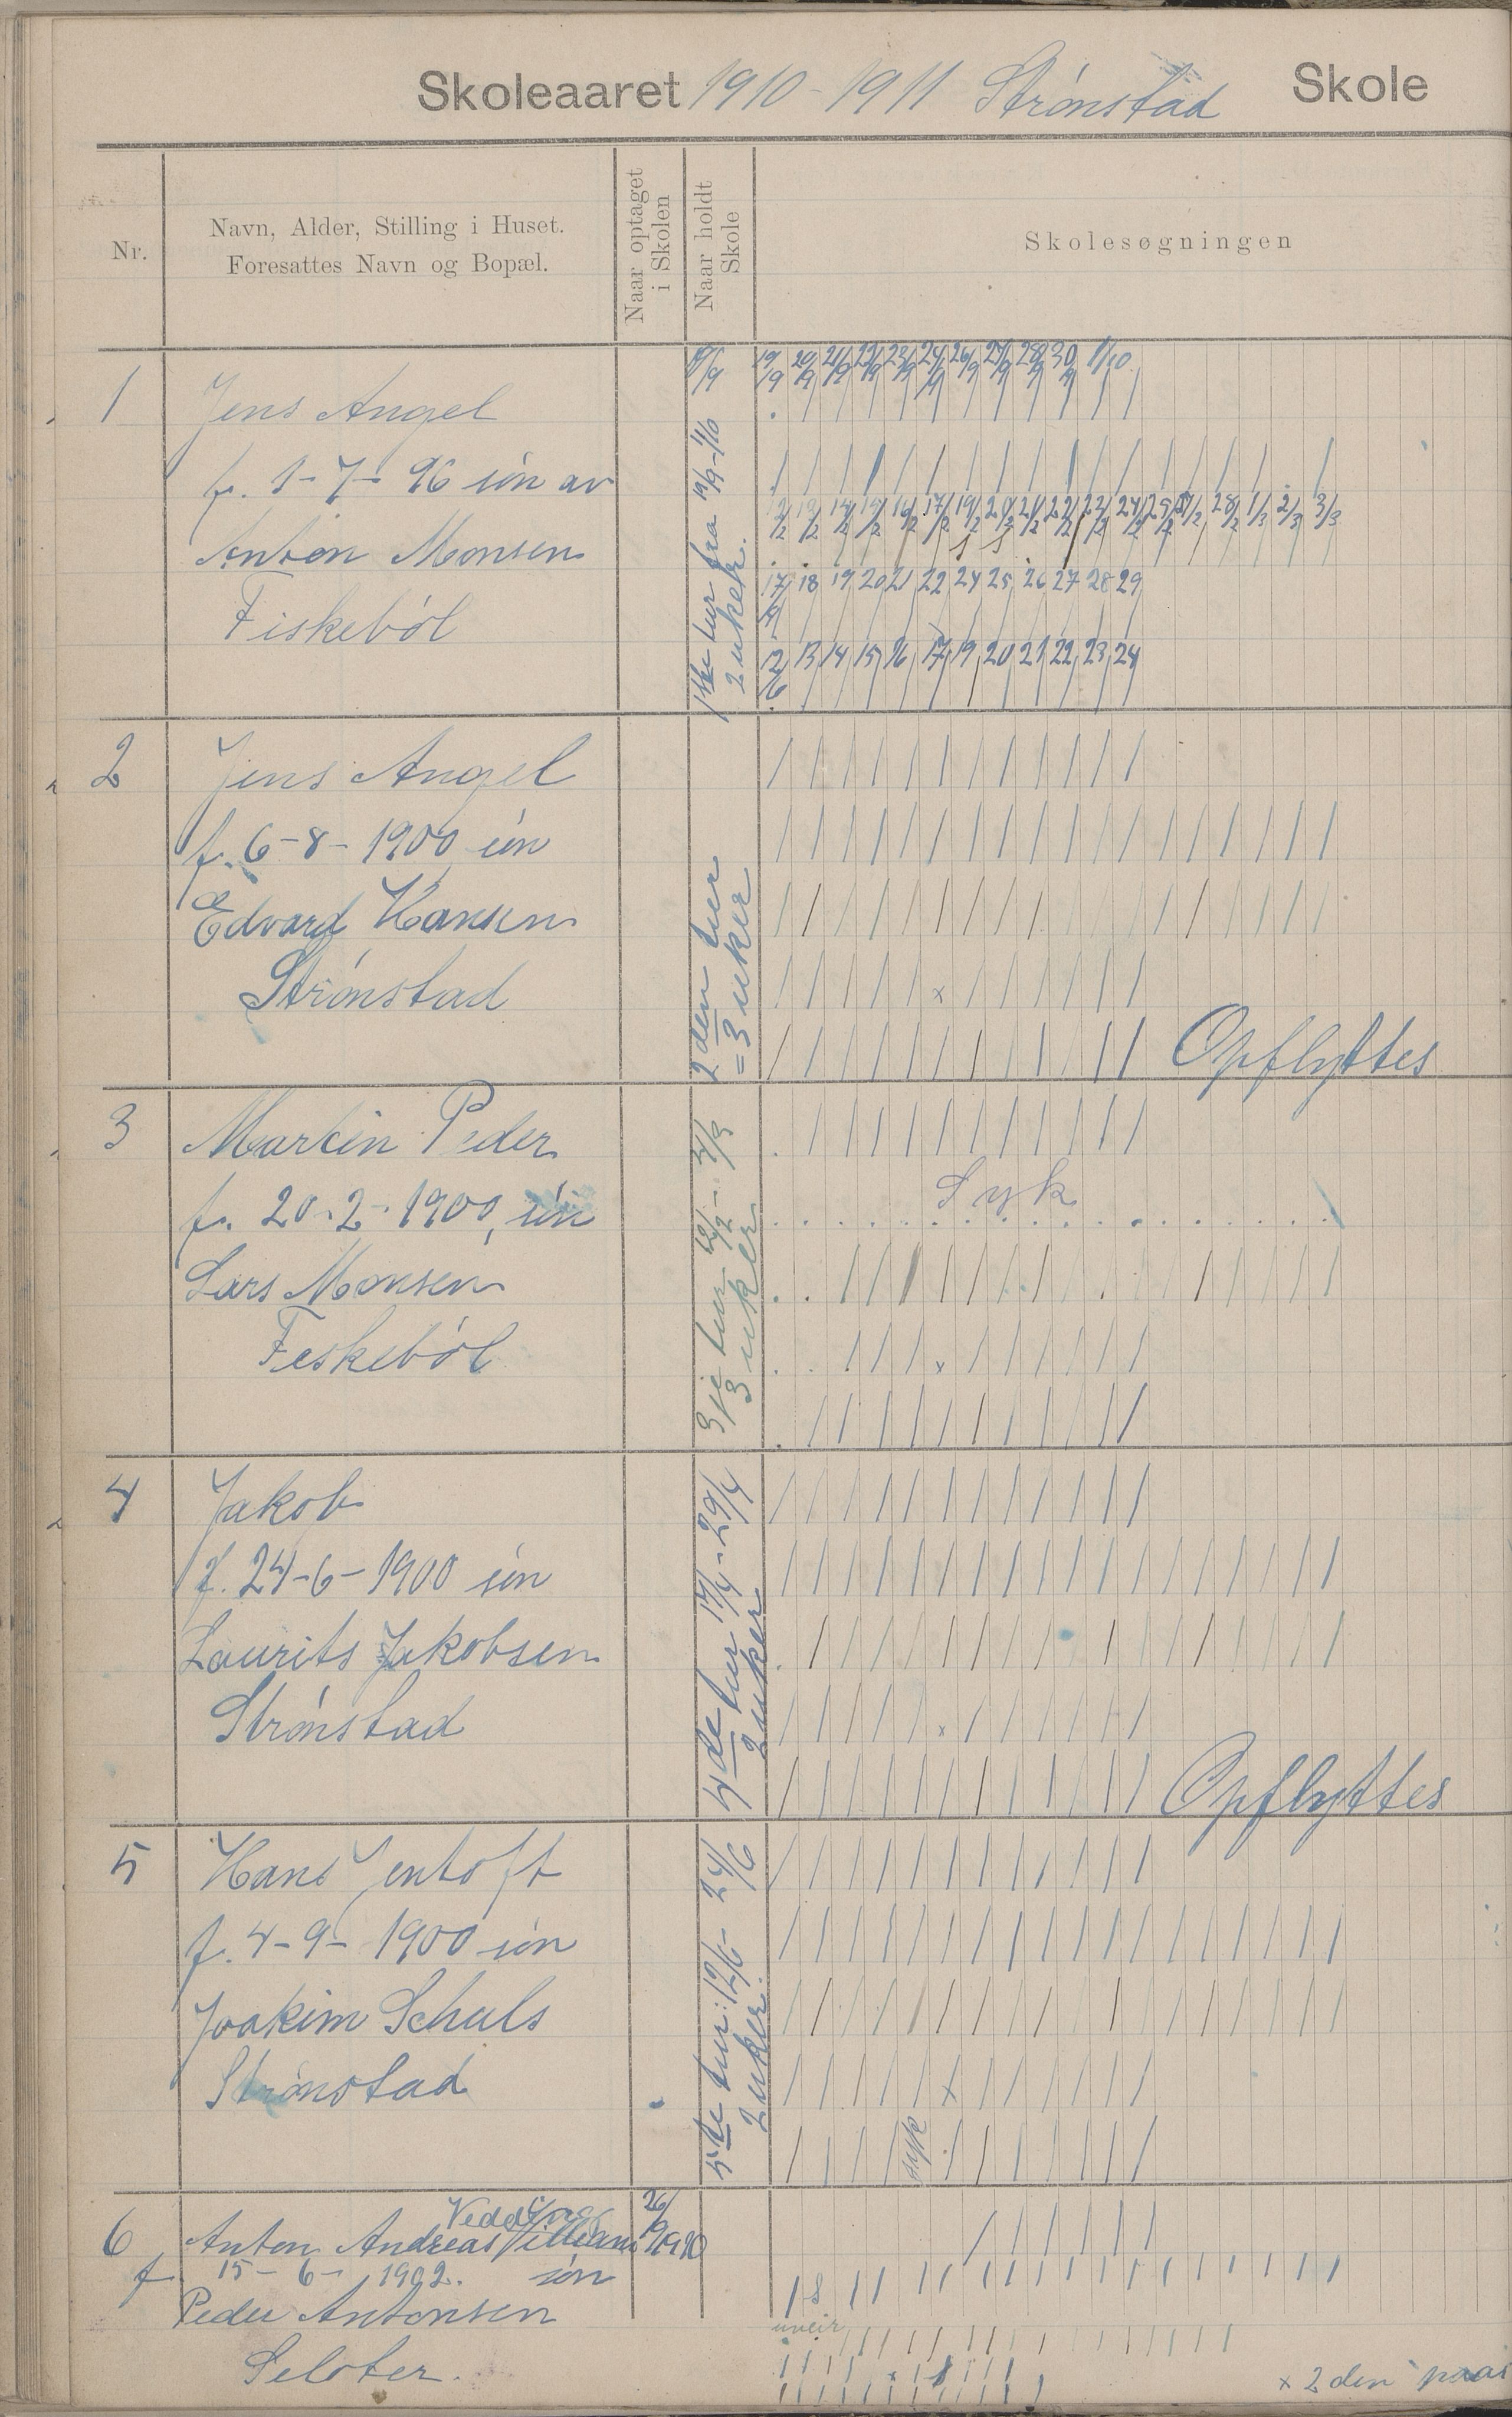 Skoleaaret 1910-1911 Strönstad Skole
Nr.
Navn, Alder, Stilling i Huset.
Foresattes Navn og Bopæl.
Naar optaget
i Skolen
Naar holdt
Skole
Skolesøgningen
1
Jens Angel
f. 1-7-96 sön av
Anton Monsen
Fiskeböl
1ste tur fra 19/9-1/10
2 uker.
19/9 20/9 21/9 22/9 23/9 24/9 26/9 27/9 28/9 30/9 1/10
13/2 14/2 15/2 16/2 17/2 19/2 20/2 21/2 22/2 24/2 25/2 28/2 1/3 2/3 3/3
17/4 18 19 20 21 22 24 25 26 27 28 29
12/6 13 14 15 16 17 19 20 21 22 23 24
2
Jens Angel
f. 6-8-1900 sön
Edvard Hansen
Strönstad
2den tur
=3 uker
Opflyttes
3
Martin Peder
f. 20-2-1900, sön
Lars Monsen
Feskeböl
3je tur
3 uker
Syk
4
Jakob
f. 24-6-1900 sön
Laurits Jakobsen
Strönstad
4de tur 17/4-29/4
2 uker
Opflyttes
5
Hans Jentoft
f. 4-9-1900 sön
Joakim Schuls
Strönstad
5te tur: 12/6-24/6
2 uker.
syk
6
Anton Andreas Villiam
26/9 1910
f. 15-6-1902. sön
Peder Antonsen
Seloter.
uveir
x 2den paas